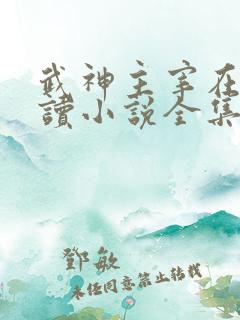 武神主宰在
讀小說全集
鄧敏
未經同意禁止轉載